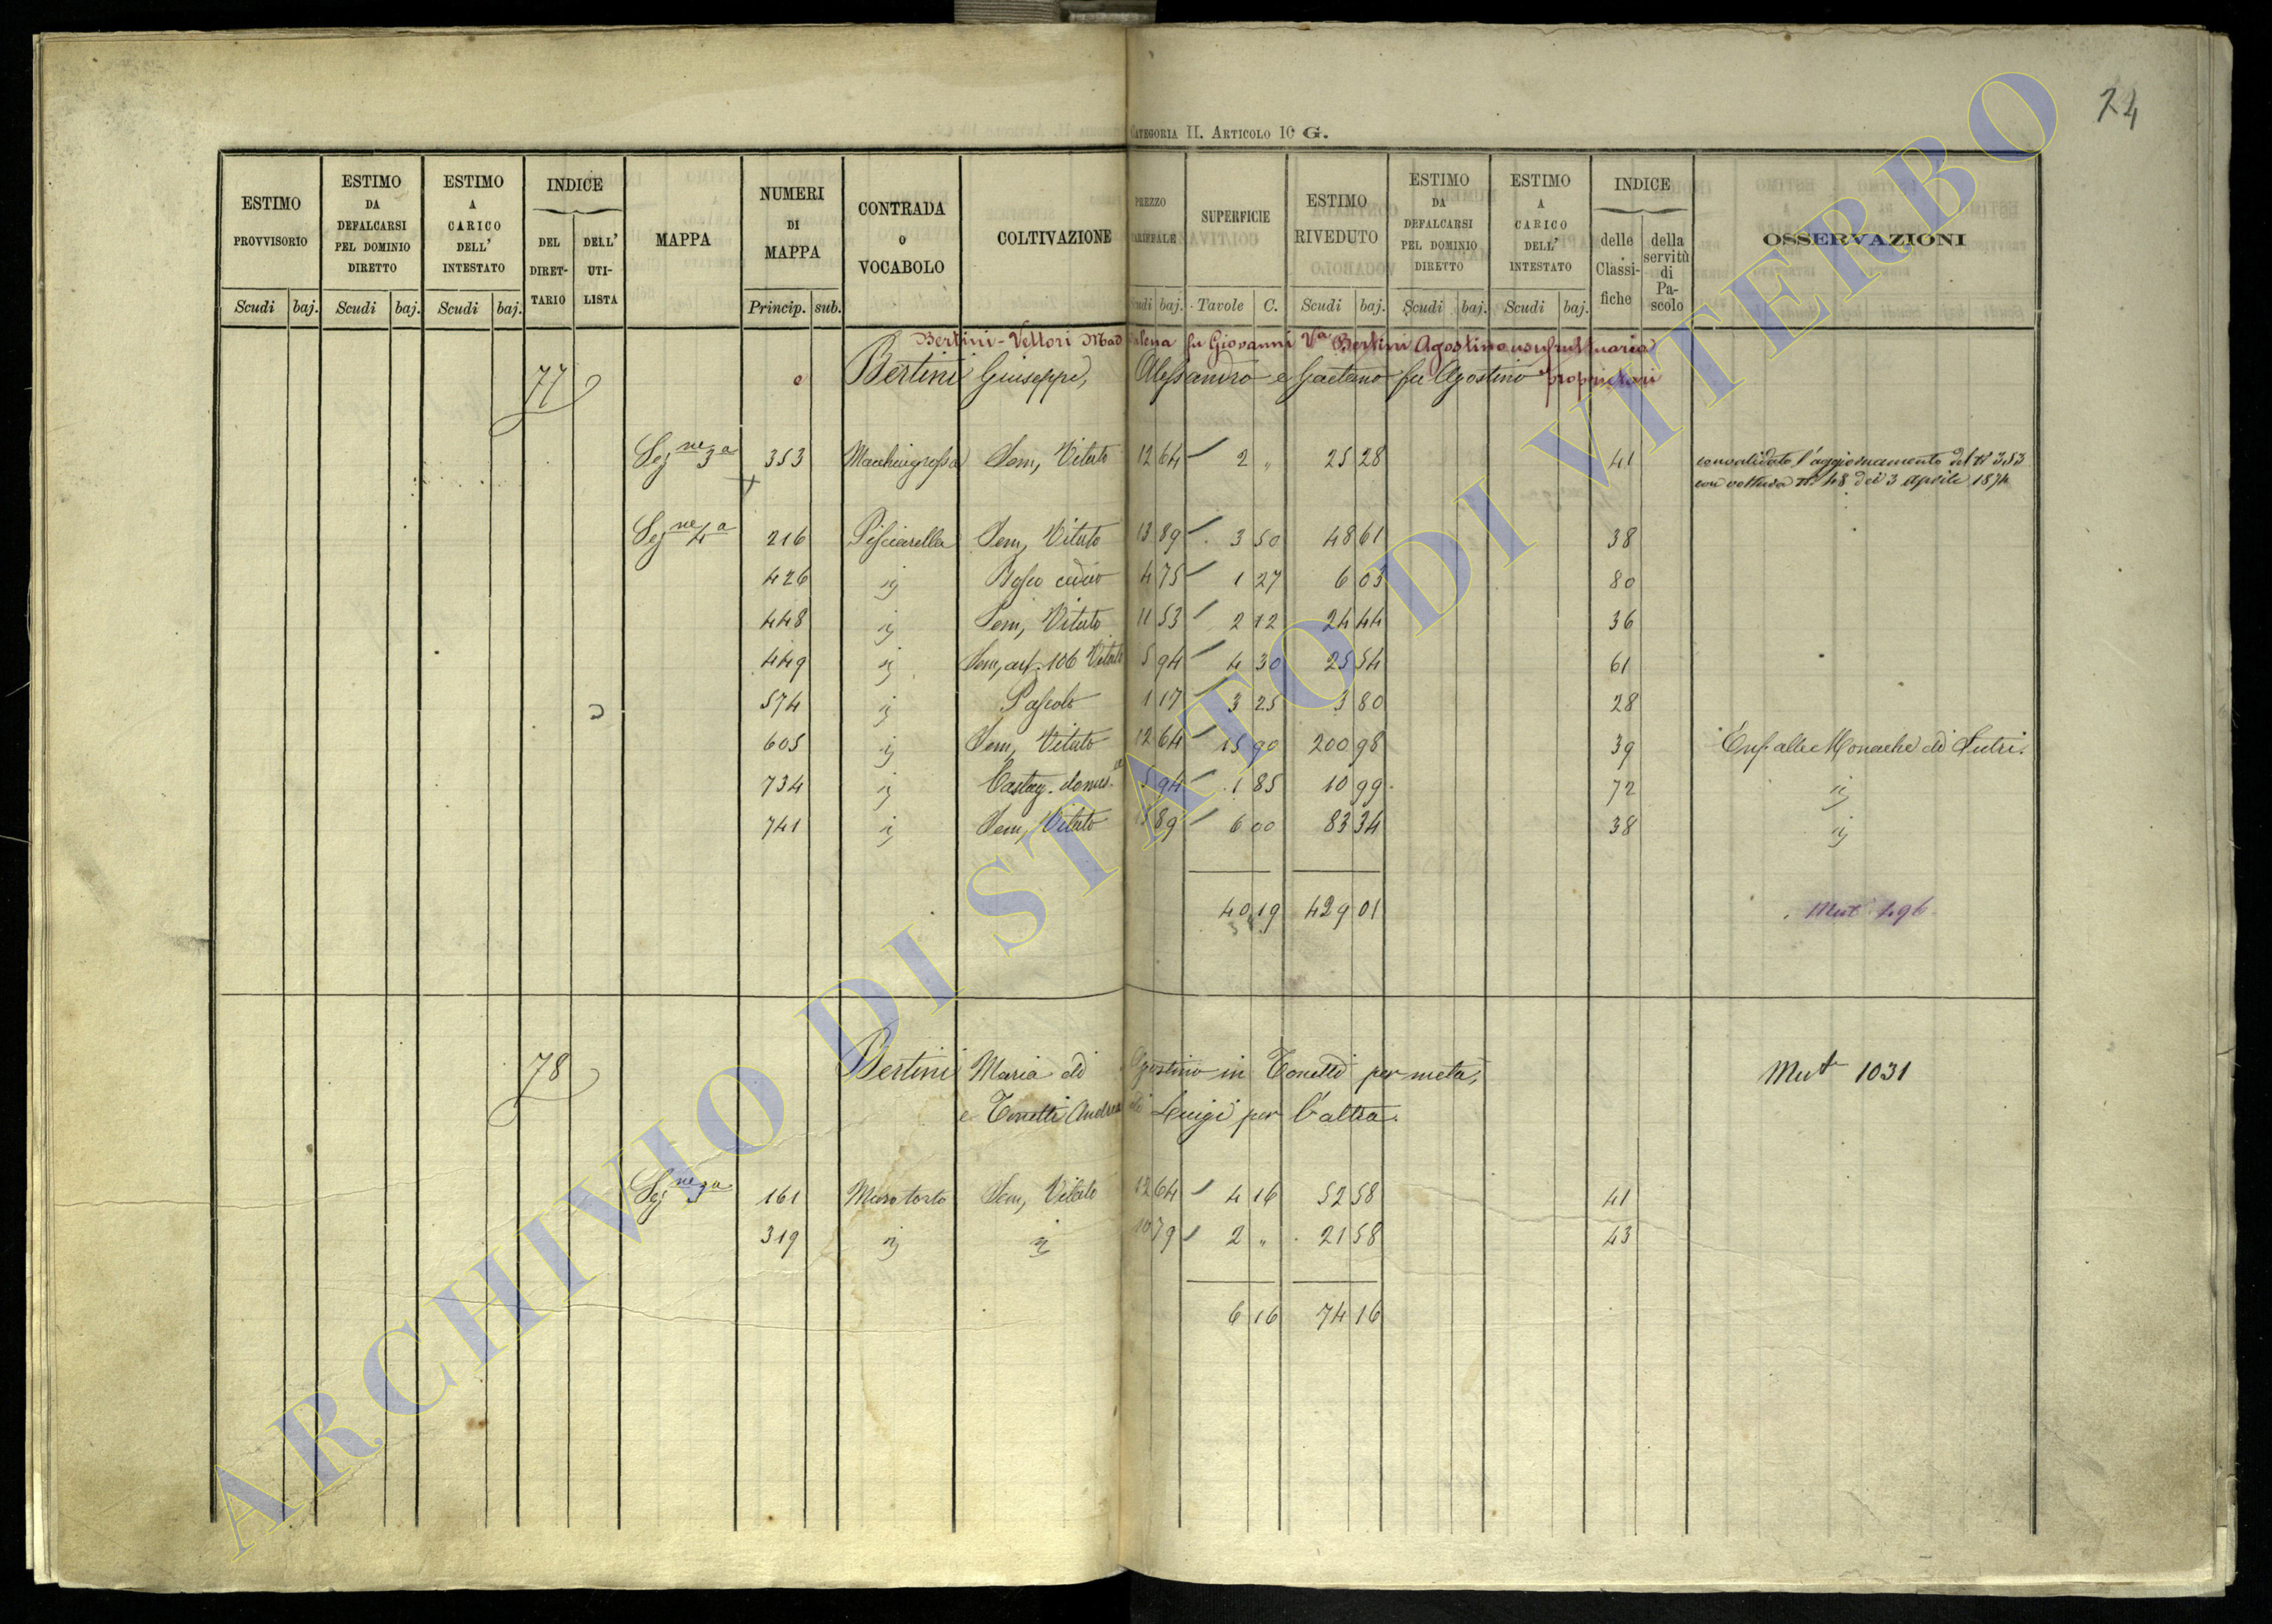 24
CATEGORIA II. ARTICOLO 10 G.
ESTIMO PROVVISORIO
ESTIMO DA DEFALCARSI PEL DOMINIO DIRETTO
ESTIMO A CARICO DELL' INTESTATO
INDICE
DEL DIRETTARIO
DELL' UTILISTA
MAPPA
NUMERI DI MAPPA
CONTRADA O VOCABOLO
COLTIVAZIONE
PREZZO
SUPERFICIE
ESTIMO RIVEDUTO
ESTIMO DA DEFALCARSI PEL DOMINIO DIRETTO
ESTIMO A CARICO DELL' INTESTATO
INDICE
delle Classifiche
della servitù di Pascolo
OSSERVAZIONI
Scudi baj. Scudi baj. Scudi baj. Princip. sub. Scudi baj. Tavole C. Scudi baj. Scudi baj. Scudi baj.
Bertini-Vettori Maddalena fu Giovanni Va Bertini Agostino usufruttuaria
77 Bertini Giuseppe, Alessandro e Gaetano fu Agostino proprietari
Segne 3a 353 Macchiagrossa Sem, Vitato 12 64 2 " 25 28 41 convalidato l'aggiornamento del N 353
con voltura N. 48 del 3 Aprile 1874
Segne 4a 216 Pisciarella Sem, Vitato 13 89 3 50 48 61 38
426 ij Bosco ceduo 4 75 1 27 6 03 80
448 ij Sem, Vitato 11 53 2 12 24 44 36
449 ij Sem, asf. 106 Vitato 5 94 4 30 25 54 61
574 ij Pascolo 1 17 3 25 3 80 28
605 ij Sem, Vitato 12 64 15 90 200 98 39 Enf. alle Monache di Sutri.
734 ij Castag. domes. 5 94 1 85 10 99 72 ij
741 ij Sem, Vitato 13 89 6 00 83 34 38 ij
40 19 429 01 Mut 496
78 Bertini Maria di Agostino in Tonetti per metà, Mut 1031
e Tonetti Andrea di Luigi per l'altra.
Segne 3a 161 Muro torto Sem, Vitato 12 64 4 16 52 58 41
319 ij ij 10 79 2 " 21 58 43
6 16 74 16
ARCHIVIO DI STATO DI VITERBO